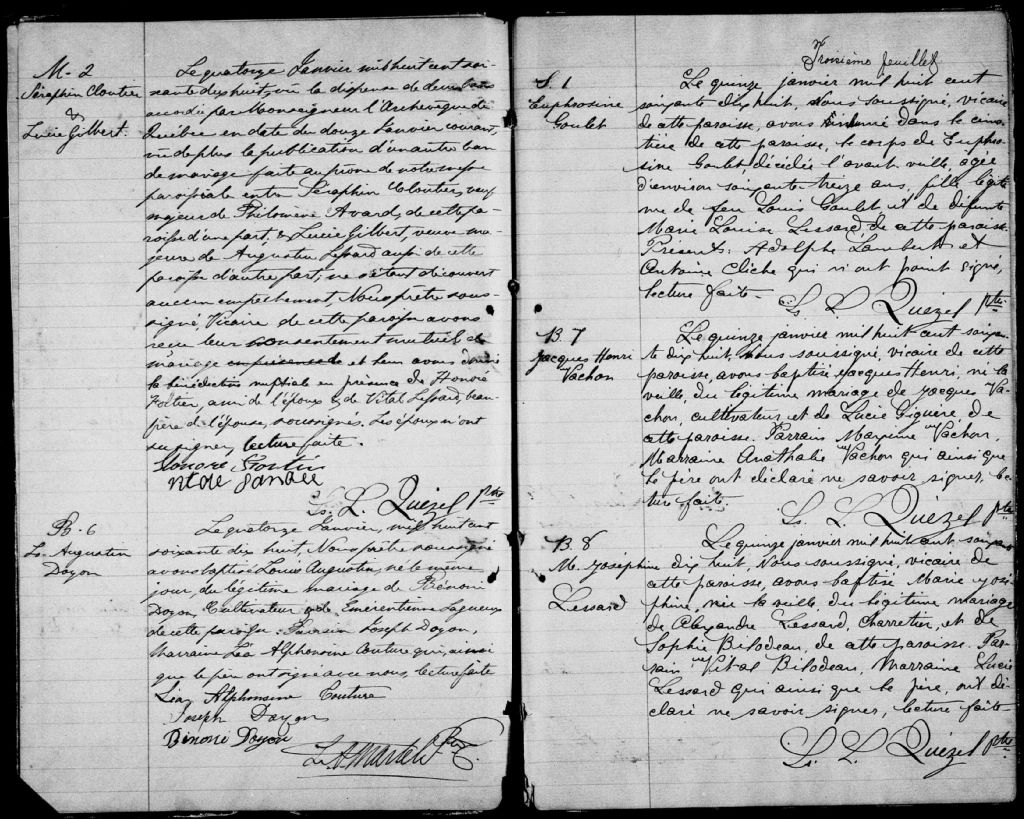 M-2
Séraphin Cloutier
&
Lucie Gilbert.
Le quatorze Janvier mil huit cent soi-
xante dix huit, vu la dispense de deux bans
accordée par Monseigneur l'Archevêque de
Québec en date du douze Janvier courant,
vu de plus la publication d'un autre ban
de mariage faite au prône de notre messe
paroissiale entre Séraphin Cloutier, veuf
majeur de Philomène Avard, de cette pa-
roisse d'une part, & Lucie Gilbert, veuve ma-
jeure de Augustin Lessard aussi de cette
paroisse d'autre part, ne s'étant découvert
aucun empêchement, Nous prêtre sous-
signé Vicaire de cette paroisse avons
reçu leur consentement mutuel de
mariage et leur avons donné
la bénédiction nuptiale en présence de Honoré
Fortier, ami de l'époux & de Vital Lessard, beau-
père de l'épouse, soussignés. Les époux n'ont
su signer, lecture faite.
Honore Fortin
Ls. L. Quézel Ptre
B-6
Ls. Augustin
Doyon
Le quatorze Janvier, mil huit cent
soixante dix huit, Nous prêtre soussigné
avons baptisé Louis Augustin, né le même
jour, du légitime mariage de Bénoni
Doyon, Cultivateur & de Emérentienne Lagueux
de cette paroisse. Parrain Joseph Doyon,
Marraine Léa Alphonsine Couture qui, ainsi
que le père ont signé avec nous, lecture faite
Léa Alphonsine Couture
Joseph Doyon
Bénoni Doyon
L. A. Martel Ptre
Troisième feuillet
S. 1
Euphrosine
Goulet
Le quinze janvier mil huit cent
soixante dix huit, Nous soussigné, vicaire
de cette paroisse, avons inhumé dans le cime-
tière de cette paroisse, le corps de Euphro-
sine Goulet décédée l'avant veille, agée
d'environ soixante treize ans, fille légiti-
me de feu Louis Goulet et de défunte
Marie Louise Lessard, de cette paroisse.
Présents: Adolphe Lambert et
Antoine Cliche qui n'ont point signé,
lecture faite.
Ls. L. Quézel Ptre
B. 7
Jacques Henri
Vachon
Le quinze janvier mil huit cent soixan-
te dix huit, nous soussigné, vicaire de cette
paroisse, avons baptisé Jacques Henri, né la
veille, du légitime mariage de Jacques Va-
chon, cultivateur, et de Lucie Giguère de
cette paroisse. Parrain Maxime Vachon,
Marraine Anathalie Vachon qui ainsi que
le père ont déclaré ne savoir signer, lec-
ture faite.
Ls. L. Quézel Ptre
B. 8
M. Joséphine
Lessard
Le quinze janvier mil huit cent soixante
dix huit, Nous soussigné, vicaire de
cette paroisse, avons baptisé Marie José-
phine, née la veille, du légitime mariage
de Alexandre Lessard, Charretier, et de
Sophie Bilodeau, de cette paroisse. Par-
rain Vital Bilodeau, Marraine Lucie
Lessard qui ainsi que le père, ont dé-
claré ne savoir signer, lecture faite
Ls. L. Quézel Ptre